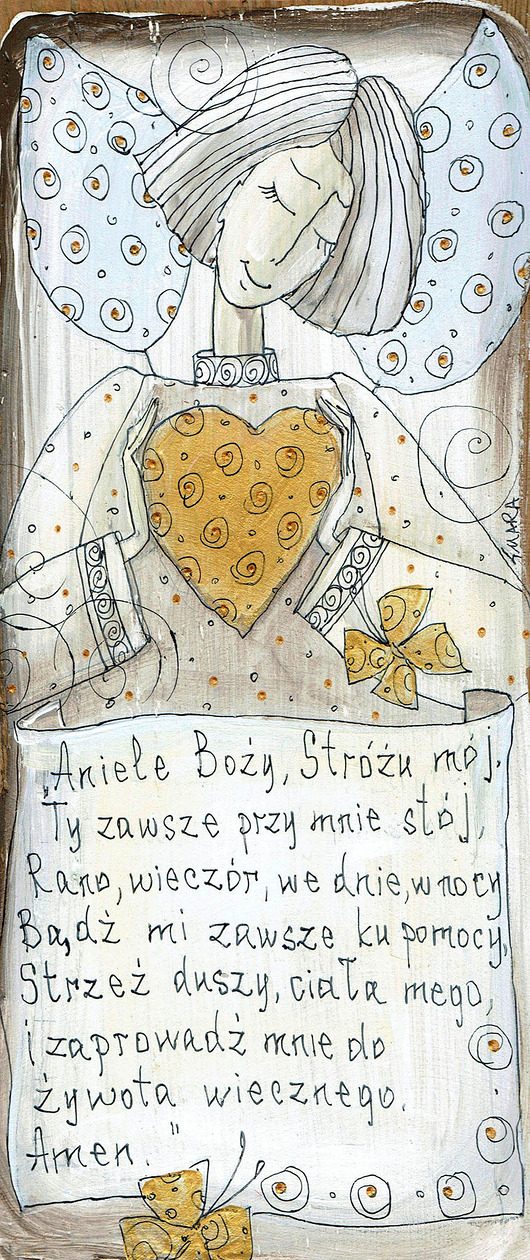 ZMARA
„Aniele Boży, Stróżu mój.
Ty zawsze przy mnie stój,
Rano, wieczór, we dnie, w nocy
Bądź mi zawsze ku pomocy,
Strzeż duszy, ciała mego,
i zaprowadź mnie do
żywota wiecznego.
Amen."